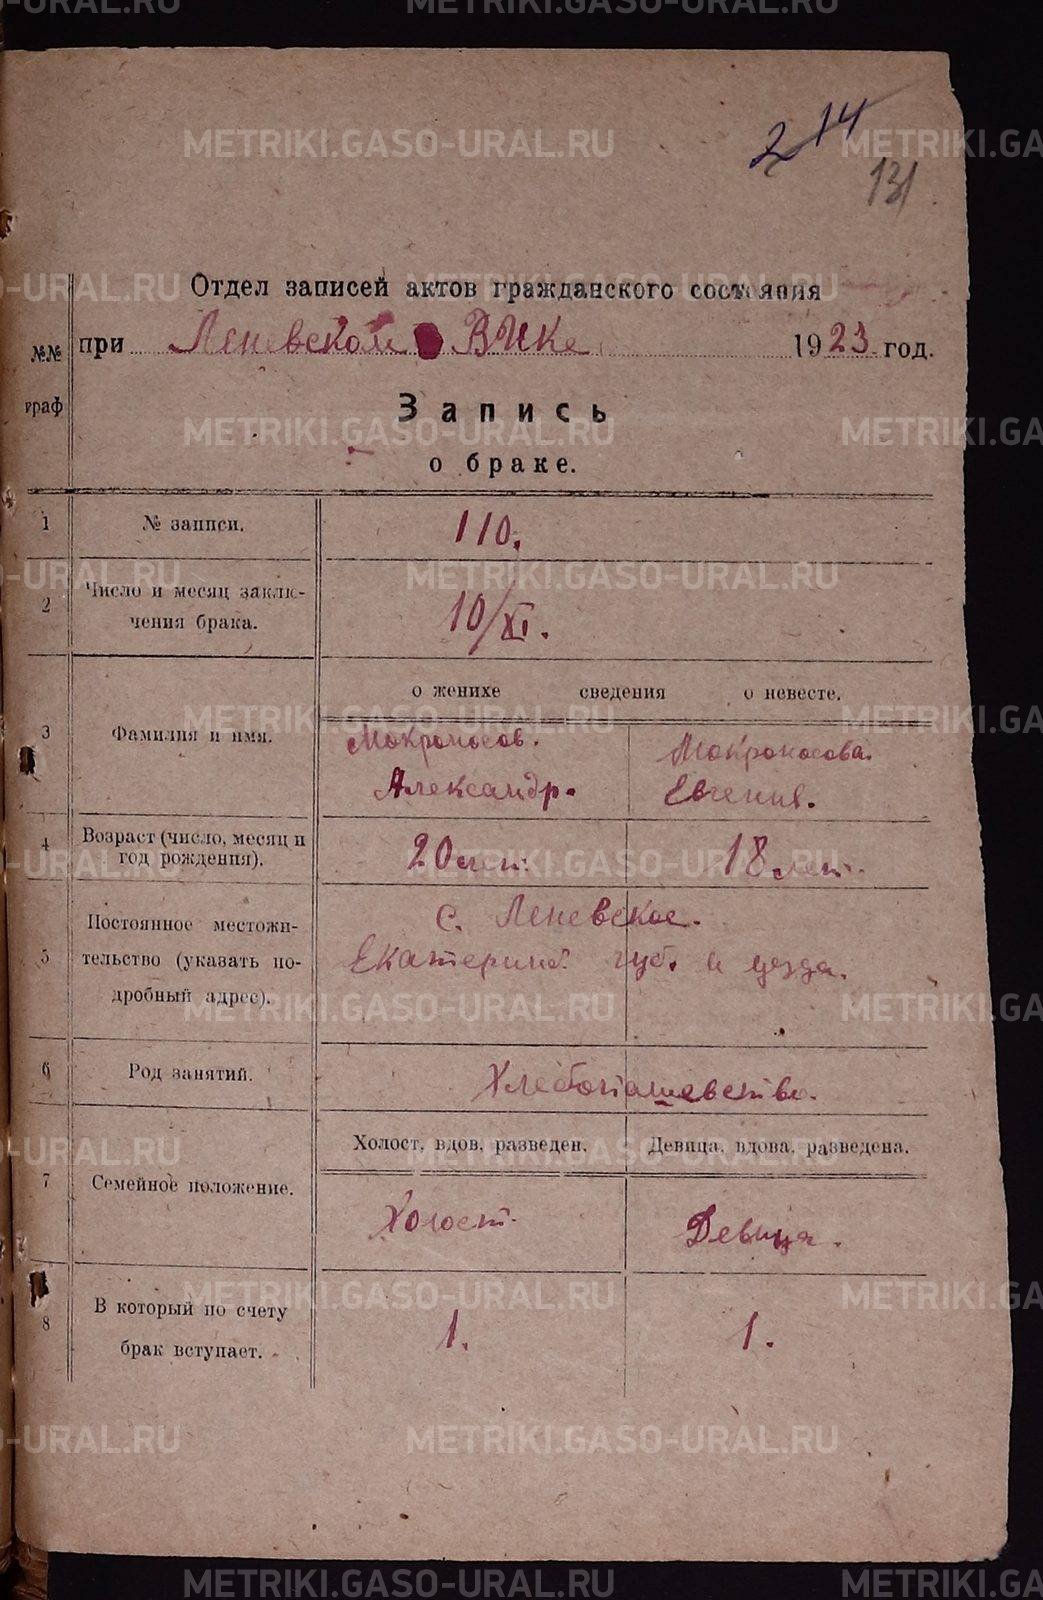 2 14
131
Отдел записей актов гражданского состояния
№№ граф
при Леневском ВИКе 1923 год.
Запись
о браке.
1 № записи. 110.
2 Число и месяц заклю-
чения брака. 10/XI.
о женихе сведения о невесте.
3 Фамилия и имя. Мокроносов. Мокроносова.
Александр. Евгения.
4 Возраст (число, месяц и
год рождения). 20 лет. 18 лет.
5 Постоянное местожи-
тельство (указать по-
дробный адрес). С. Леневское.
Екатеринб. губ. и уезда.
6 Род занятий. Хлебопашевство.
Холост, вдов, разведен. Девица, вдова, разведена.
7 Семейное положение. Холост. Девица.
8 В который по счету
брак вступает. 1. 1.
METRIKI.GASO-URAL.RU